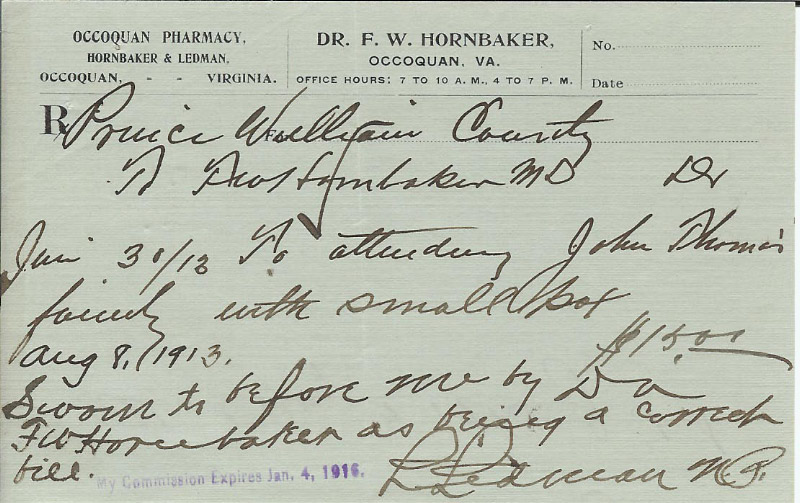 OCCOQUAN PHARMACY,
HORNBAKER & LEDMAN,
OCCOQUAN, - - VIRGINIA.
DR. F. W. HORNBAKER,
OCCOQUAN, VA.
OFFICE HOURS: 7 TO 10 A. M., 4 TO 7 P. M.
No.
Date
Rx Prince William County
To F W Hornbaker MD Dr
30/13 To attending John Thomas
family with small pox
$15.00
Aug 8, 1913.
Sworn to before me by Dr
F W Hornbaker as being a correct
bill.
My Commission Expires Jan. 4, 1916.
Ledman N.P.